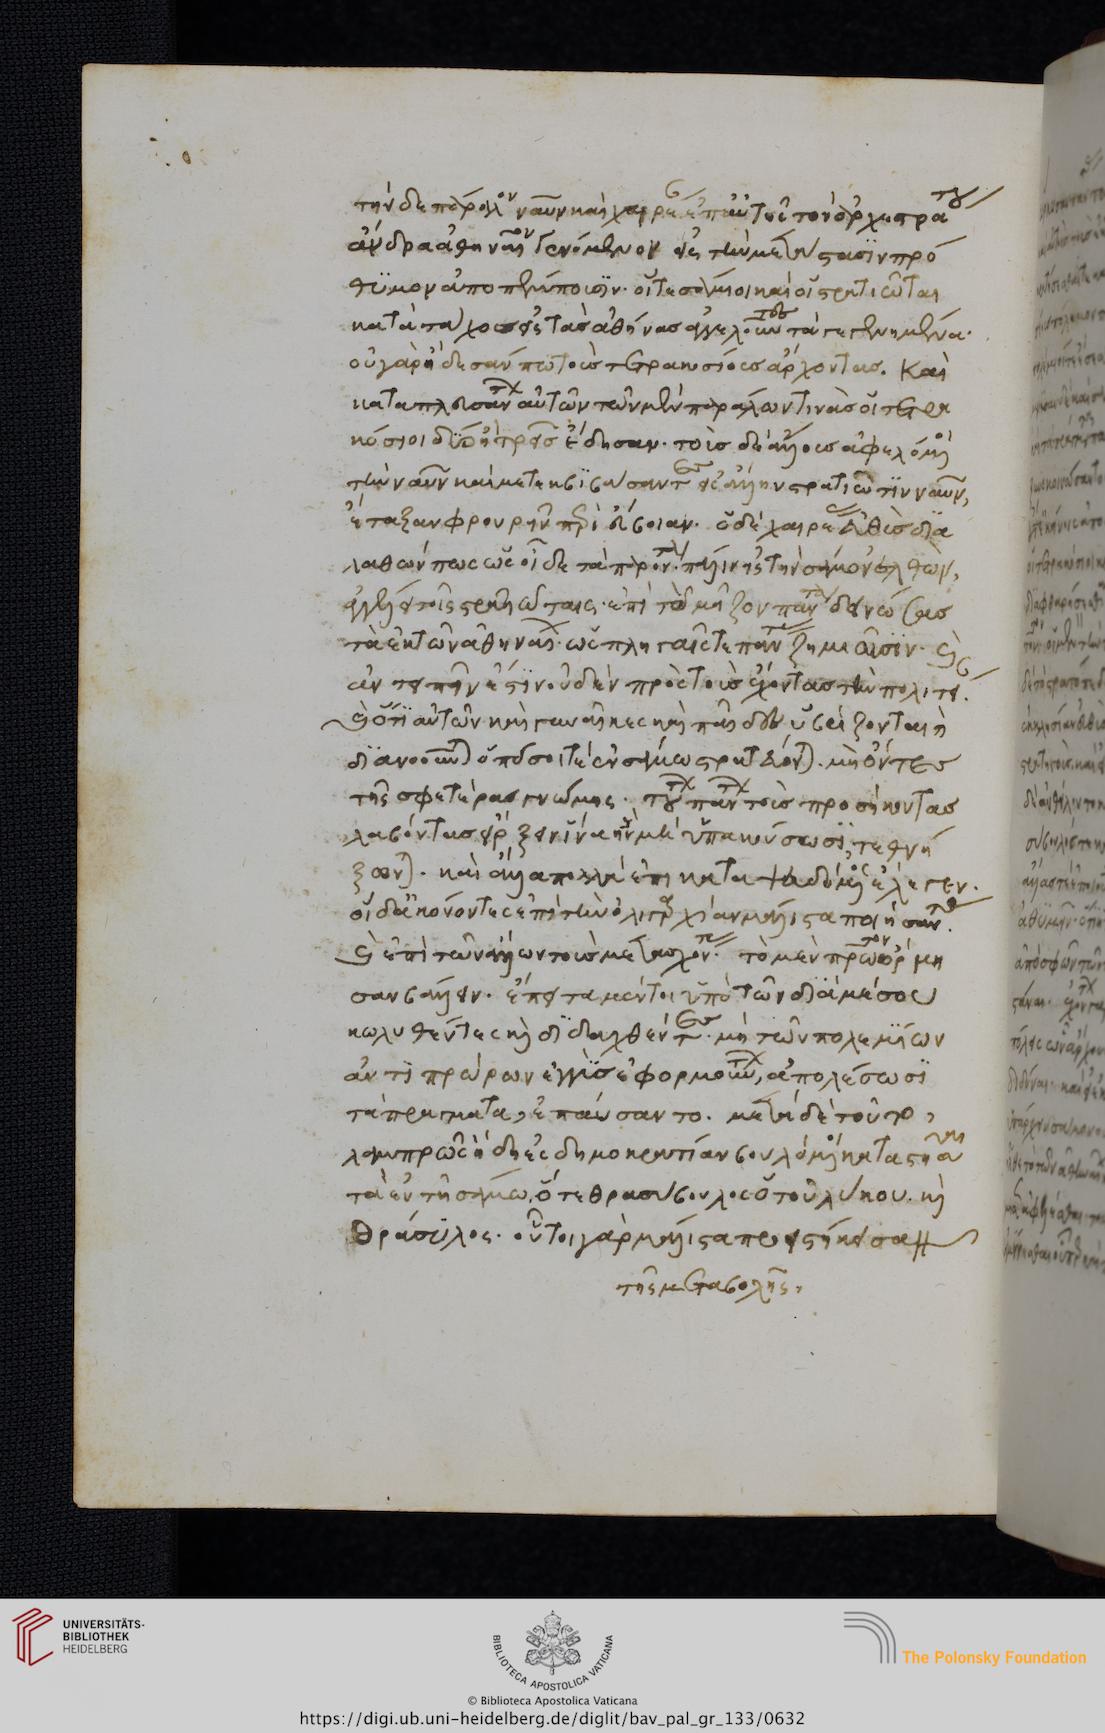 τὴν δὲ πάραλον ναῦν καὶ χαιρέαν ἐπ' αὐτῆς τὸν ἀρχεστράτου
ἄνδρα ἀθηναῖον γενόμενον ἐς τὴν μετάστασιν πρό
θυμον ἀποπέμπουσιν· οἵ τε σάμιοι καὶ οἱ στρατιῶται
κατὰ τάχος ἐς τὰς ἀθήνας ἀγγελοῦντας τὰ γεγενημένα·
οὐ γὰρ ᾔδεσάν πω τοὺς τετρακοσίους ἄρχοντας. καὶ
καταπλευσάντων αὐτῶν τῶν μὲν παράλων τινὰς οἱ τετρα
κόσιοι δύο ἢ τρεῖς ἔδησαν· τοὺς δὲ ἄλλους ἀφελόμενοι
τὴν ναῦν καὶ μετεκβιβάσαντες ἐς ἄλλην στρατιῶτιν ναῦν,
ἔταξαν φρουρεῖν περὶ εὔβοιαν. ὁ δὲ χαιρέας εὐθὺς δια
λαθών πως ὡς εἶδε τὰ παρόντα, πάλιν ἐς τὴν σάμον ἐλθὼν,
ἀγγέλλει τοῖς στρατιώταις· ἐπὶ τὸ μεῖζον πάντα δεινώσας
τὰ ἐκ τῶν ἀθηναίων· ὡς πληγαῖς τε πάντας ζημιοῦσιν· καὶ
ἀντειπεῖν ἔστιν οὐδὲν πρὸς τοὺς ἔχοντας τὴν πολιτείαν.
καὶ ὅτι αὐτῶν καὶ γυναῖκες καὶ παῖδες ὑβρίζονται καὶ
διανοοῦνται ὁπόσοι τε ἐν σάμῳ στρατεύονται. μὴ ὄντες
τῆς σφετέρας γνώμης· τούτων πάντων τοὺς προσήκοντας
λαβόντες εἴρξειν ἵνα ἢν μὴ ὑπακούσωσι, τεθνή
ξονται. καὶ ἄλλα πολλὰ ἐπικαταψευδόμενος ἔλεγεν.
οἱ δὲ ἀκούοντες ἐπὶ τοὺς τὴν ὀλιγαρχίαν μάλιστα ποιήσαντας.
καὶ ἐπὶ τῶν ἄλλων τοὺς μετασχόντας· τὸ μὲν πρῶτον ὥρμη
σαν βάλλειν. ἔπειτα μέντοι ὑπὸ τῶν διὰ μέσου
κωλυθέντες καὶ διδαχθέντες· μὴ τῶν πολεμίων
ἀντιπρώρων ἐγγὺς ἐφορμούντων, ἀπολέσωσι
τὰ πράγματα, ἐπαύσαντο. μετὰ δὲ τοῦτο,
λαμπρῶς ἤδη ἐς δημοκρατίαν βουλόμενοι μεταστῆσαι
τὰ ἐν τῇ σάμῳ, ὅ τε θρασύβουλος ὁ τοῦ λύκου. καὶ
θράσυλος. οὗτοι γὰρ μάλιστα προειστήκεσαν
τῆς μεταβολῆς,
UNIVERSITÄTS-
BIBLIOTHEK
HEIDELBERG
BIBLIOTECA APOSTOLICA VATICANA
The Polonsky Foundation
© Biblioteca Apostolica Vaticana
https://digi.ub.uni-heidelberg.de/diglit/bav_pal_gr_133/0632